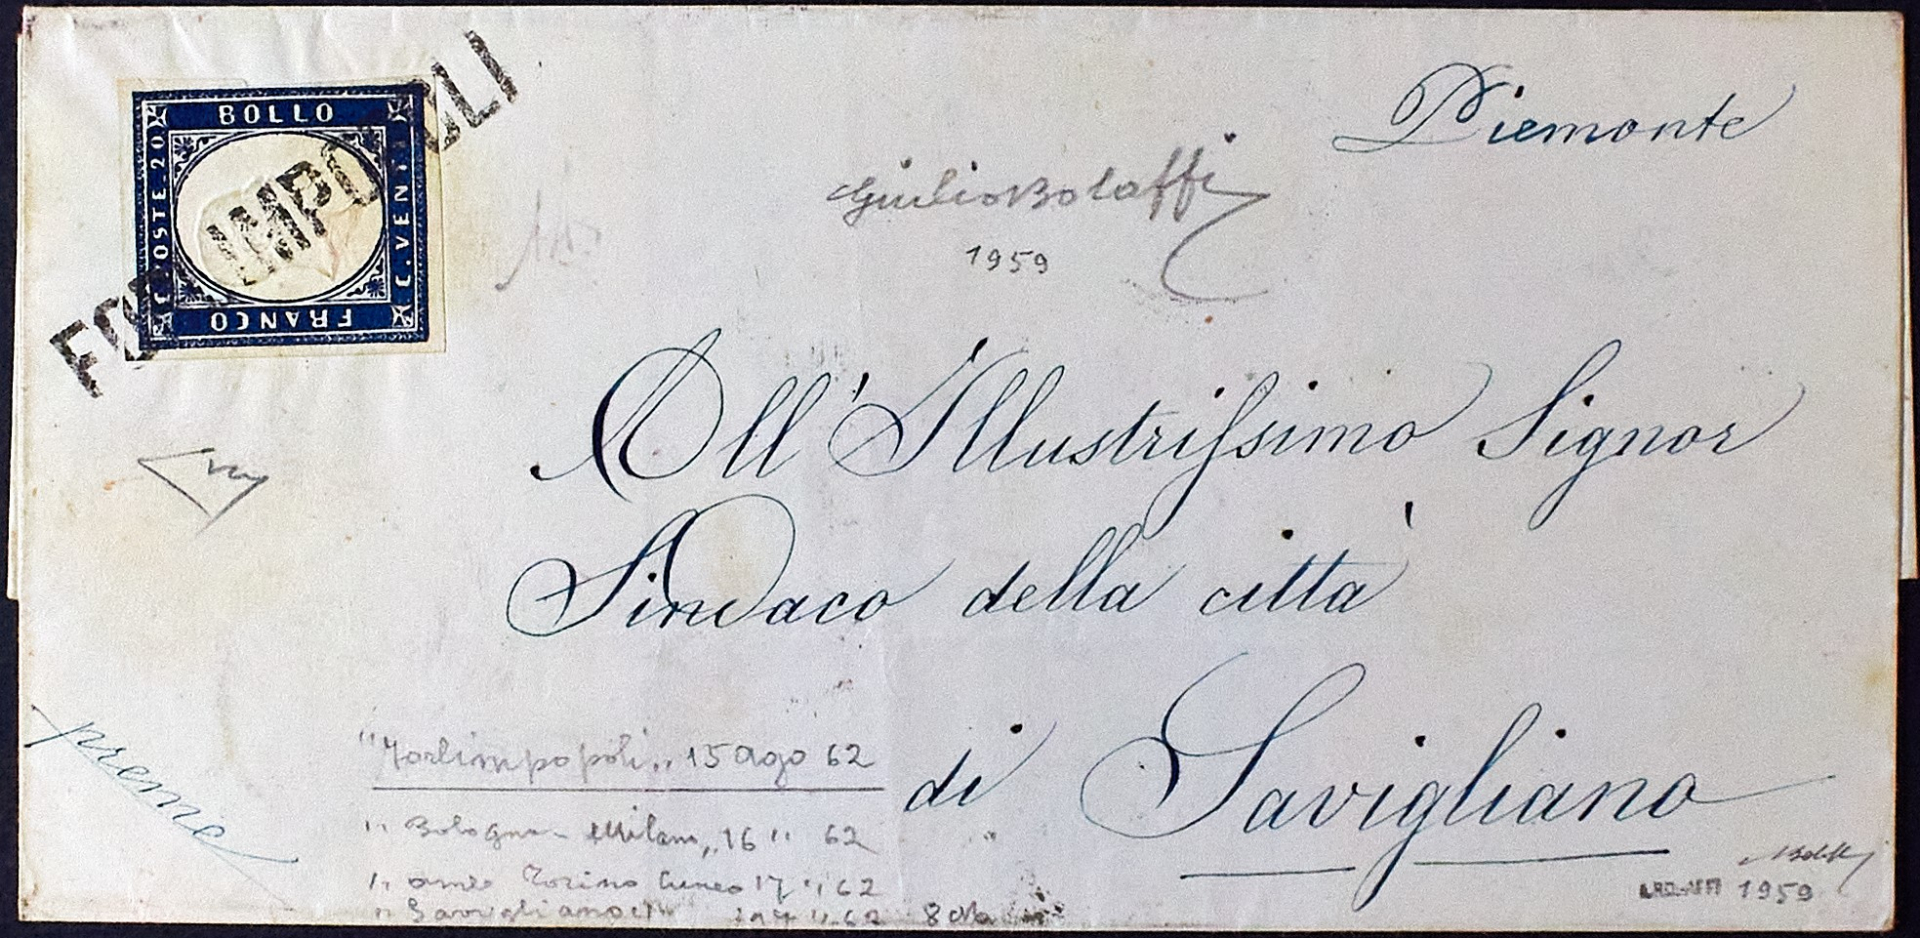 FORLIMPOPOLI
BOLLO
C. POSTE. 20
C. VENTI
FRANCO
Piemonte
Giulio Bolaffi
1959
All'Illustrissimo Signor
Sindaco della città
di Savigliano
preme
"Forlimpopoli" 15 Ago 62
" Bologna - Milano " 16 " 62
Torino Cuneo 17 " 62
" Savigliano 62
Bolaffi
1959